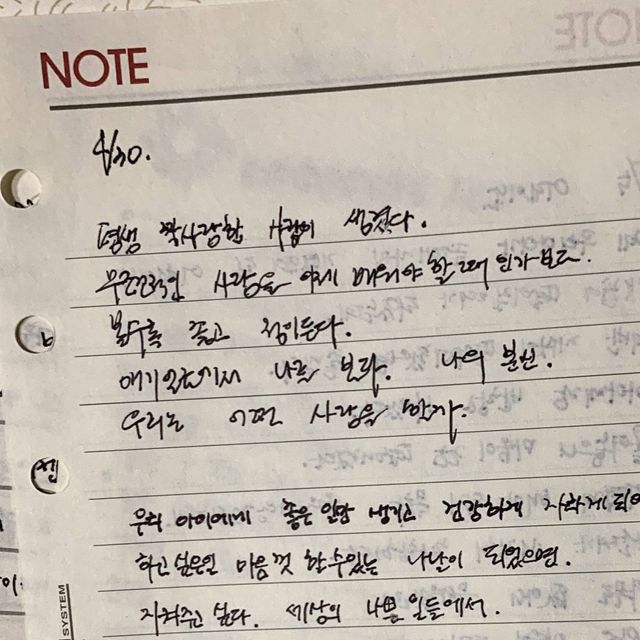 NOTE
4/30.
평생 짝사랑할 사람이 생겼다.
무조건적인 사랑을 이제 배워야 할 때 인가보다.
볼수록 좋고 정이든다.
애기 나를 보다. 나의 분신.
우리는 어떤 사랑을 할까.
우리 아이에게 좋은 일만 생기고 건강하게 자라게 되어
하고싶은일 마음껏 할 수 있는 나날이 되었으면.
지켜주고 싶다. 세상의 나쁜 일들에서.
SYSTEM